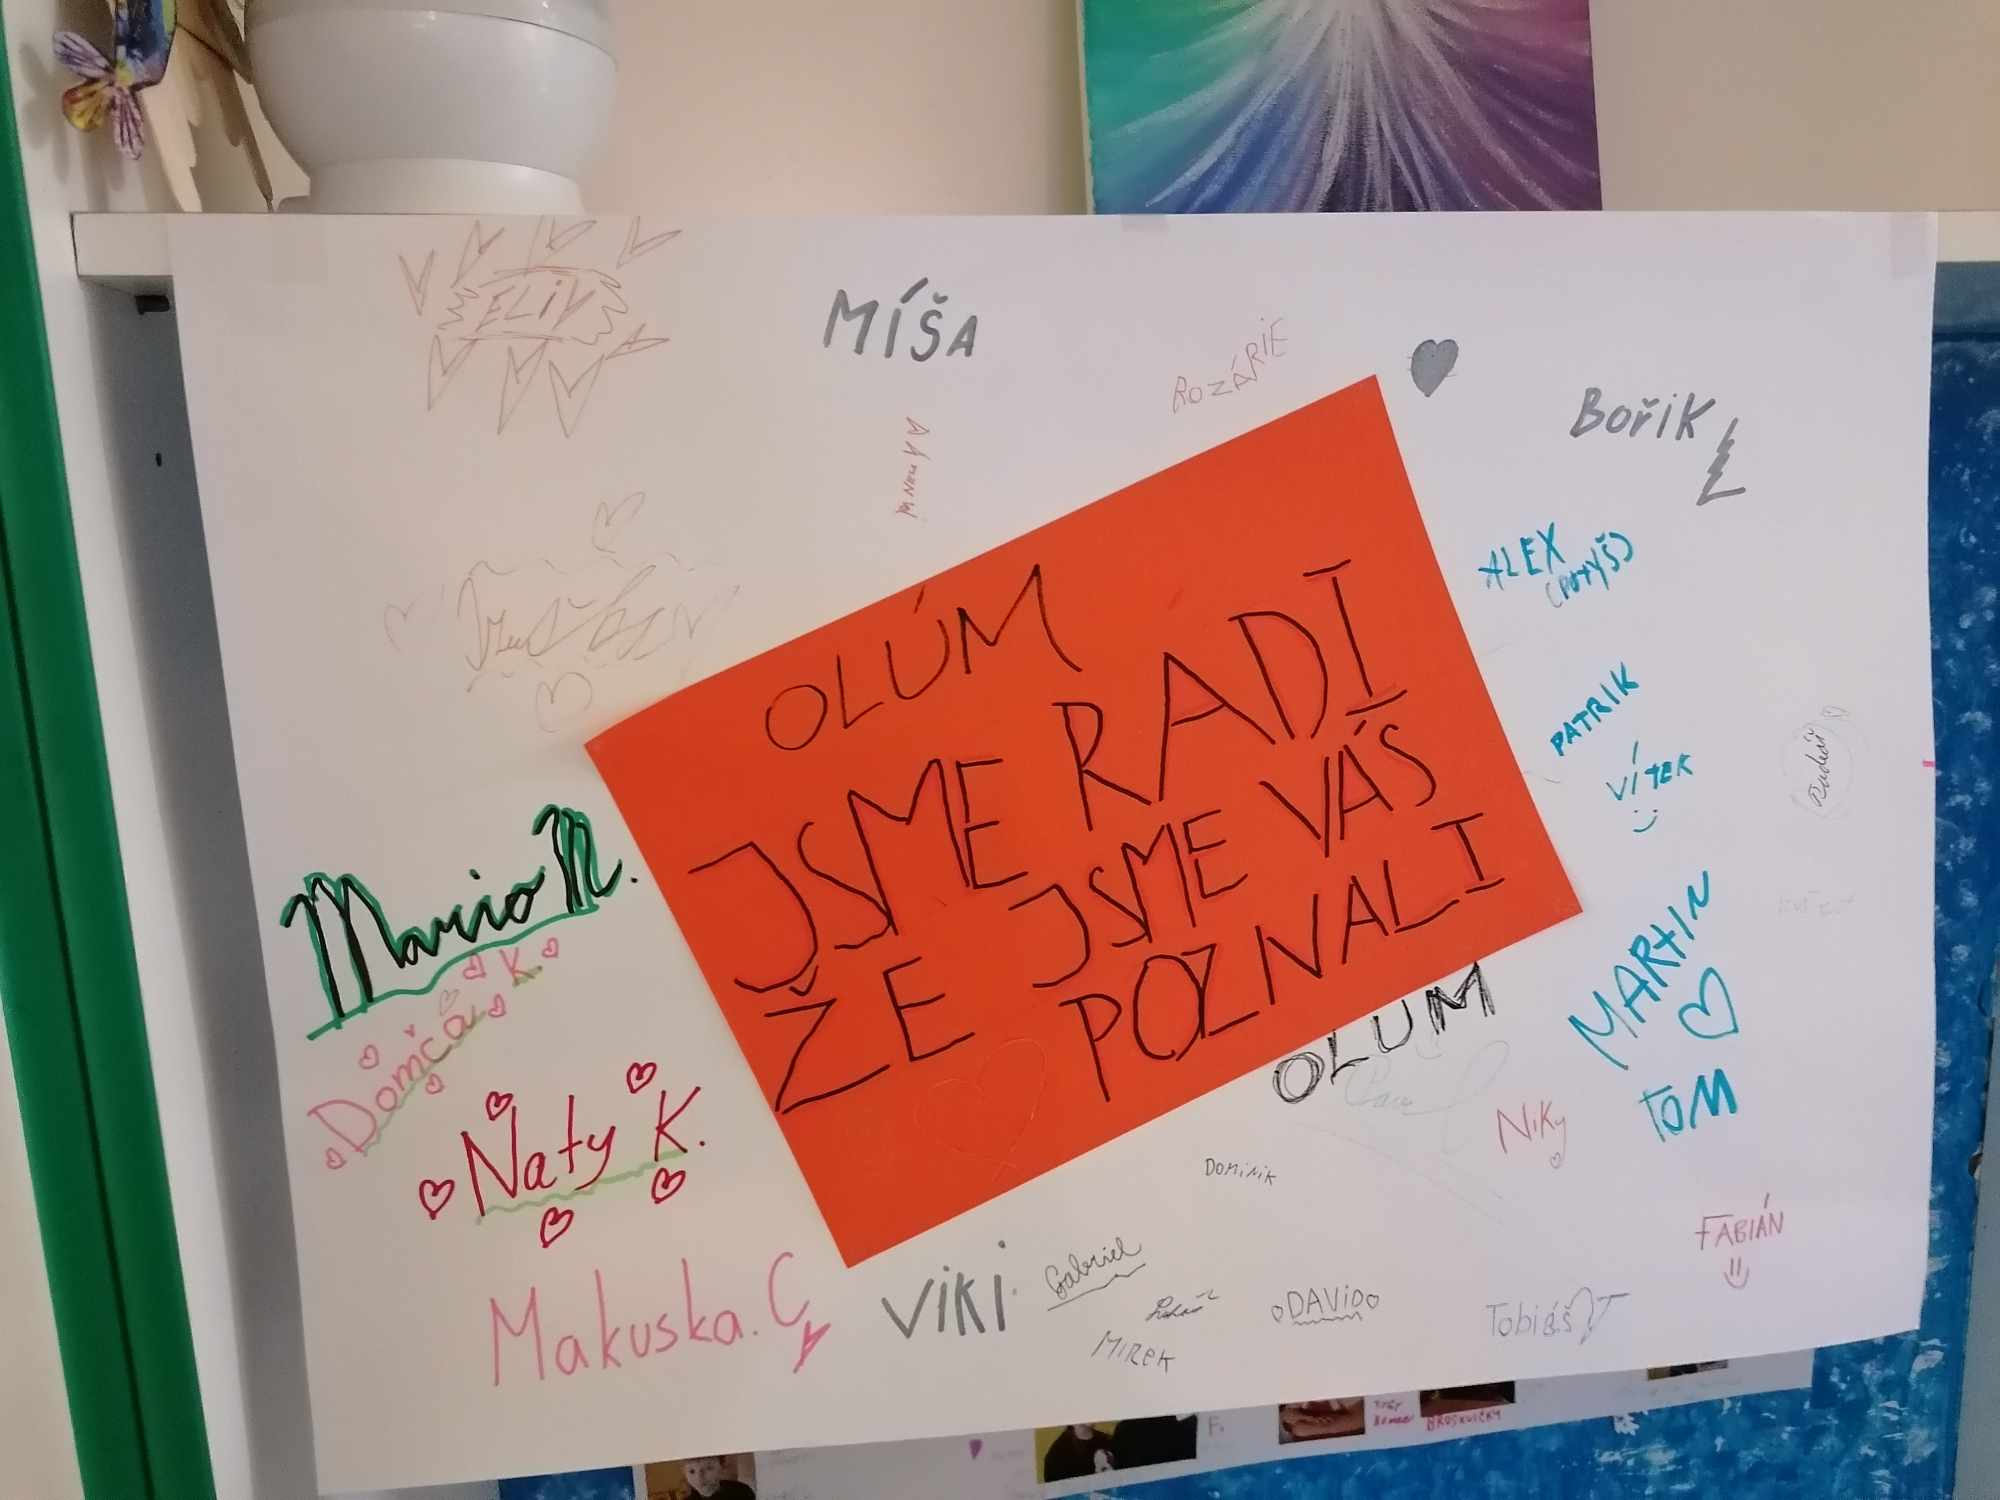 ELIV
MÍŠA
ROZÁRIE
BOŘIK
ALEX
OLÚM
JSME RADI
ŽE JSME VÁS
POZNALI
PATRIK
VÍTEK
Mario M.
Domča K
MARTIN
OLUM
TOM
Naty K.
Niky
DOMINIK
FABIÁN
Makuska. C
VIKI
Gabriel
DAVID
Tobiáš T
MIREK
BROSKVIČKY